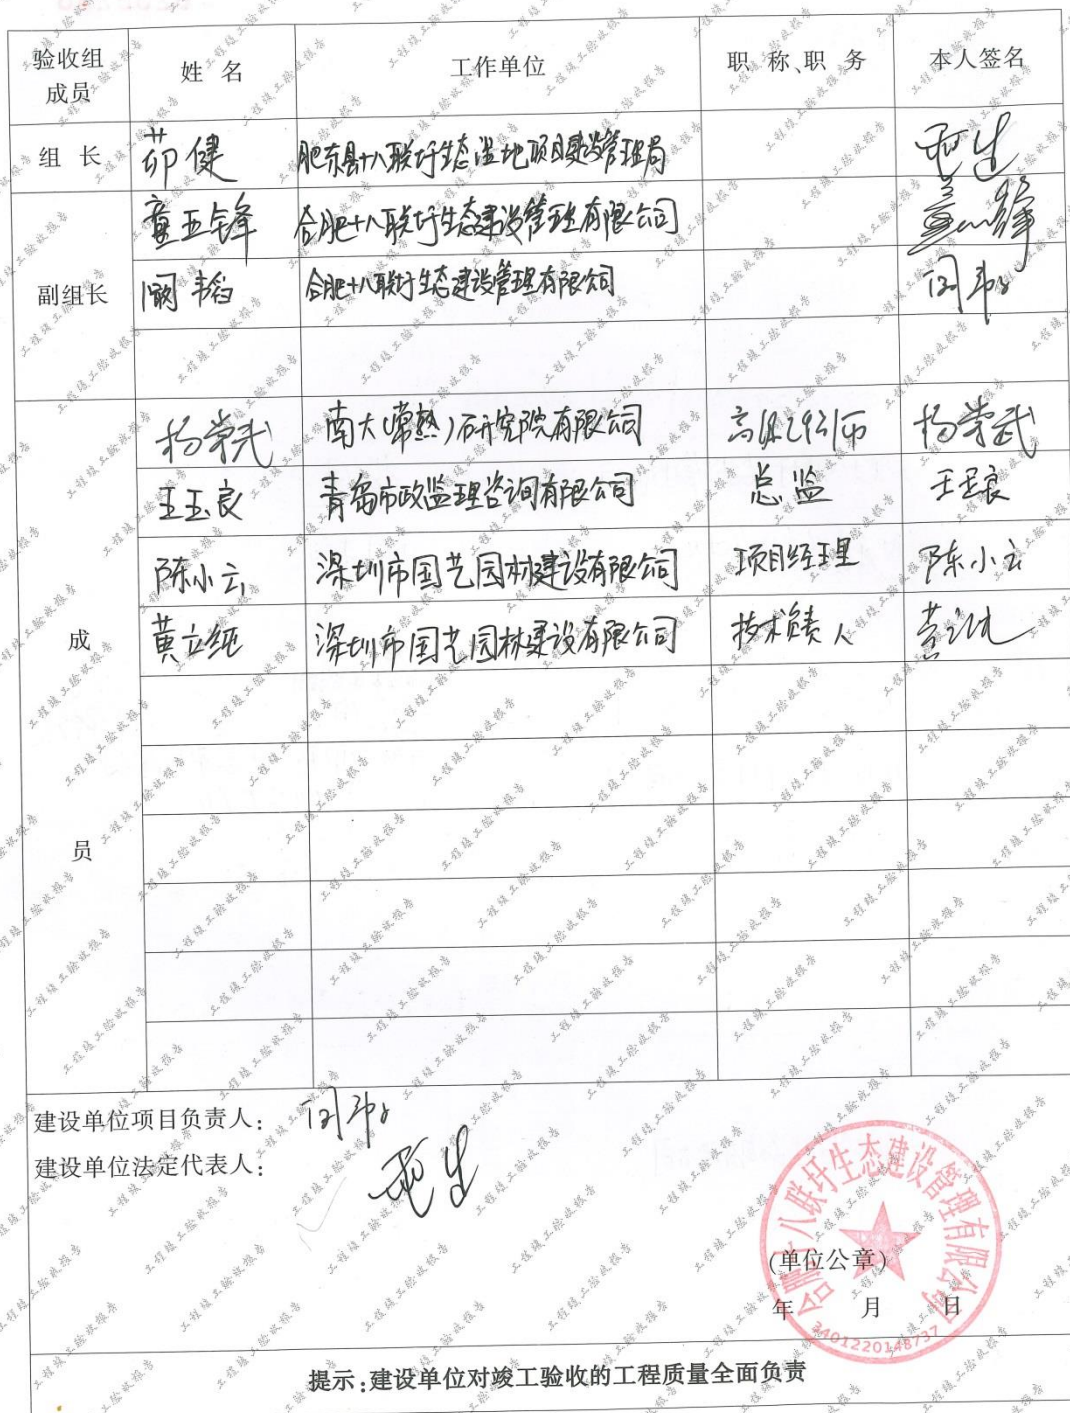 验收组成员 姓名 工作单位 职称、职务 本人签名
组长 茆健 肥东县十八联圩生态湿地项目建设管理局
童五锋 合肥十八联圩生态建设管理有限公司
副组长 阚韬 合肥十八联圩生态建设管理有限公司
杨常武 南大(常熟)研究院有限公司 高级工程师 杨常武
王玉良 青岛市政监理咨询有限公司 总监 王玉良
陈小云 深圳市国艺园林建设有限公司 项目经理 陈小云
成员 黄立纯 深圳市国艺园林建设有限公司 技术负责人
建设单位项目负责人:
建设单位法定代表人:
合肥十八联圩生态建设管理有限公司
(单位公章)
年 月 日
3401220148737
提示:建设单位对竣工验收的工程质量全面负责
工程竣工验收报告